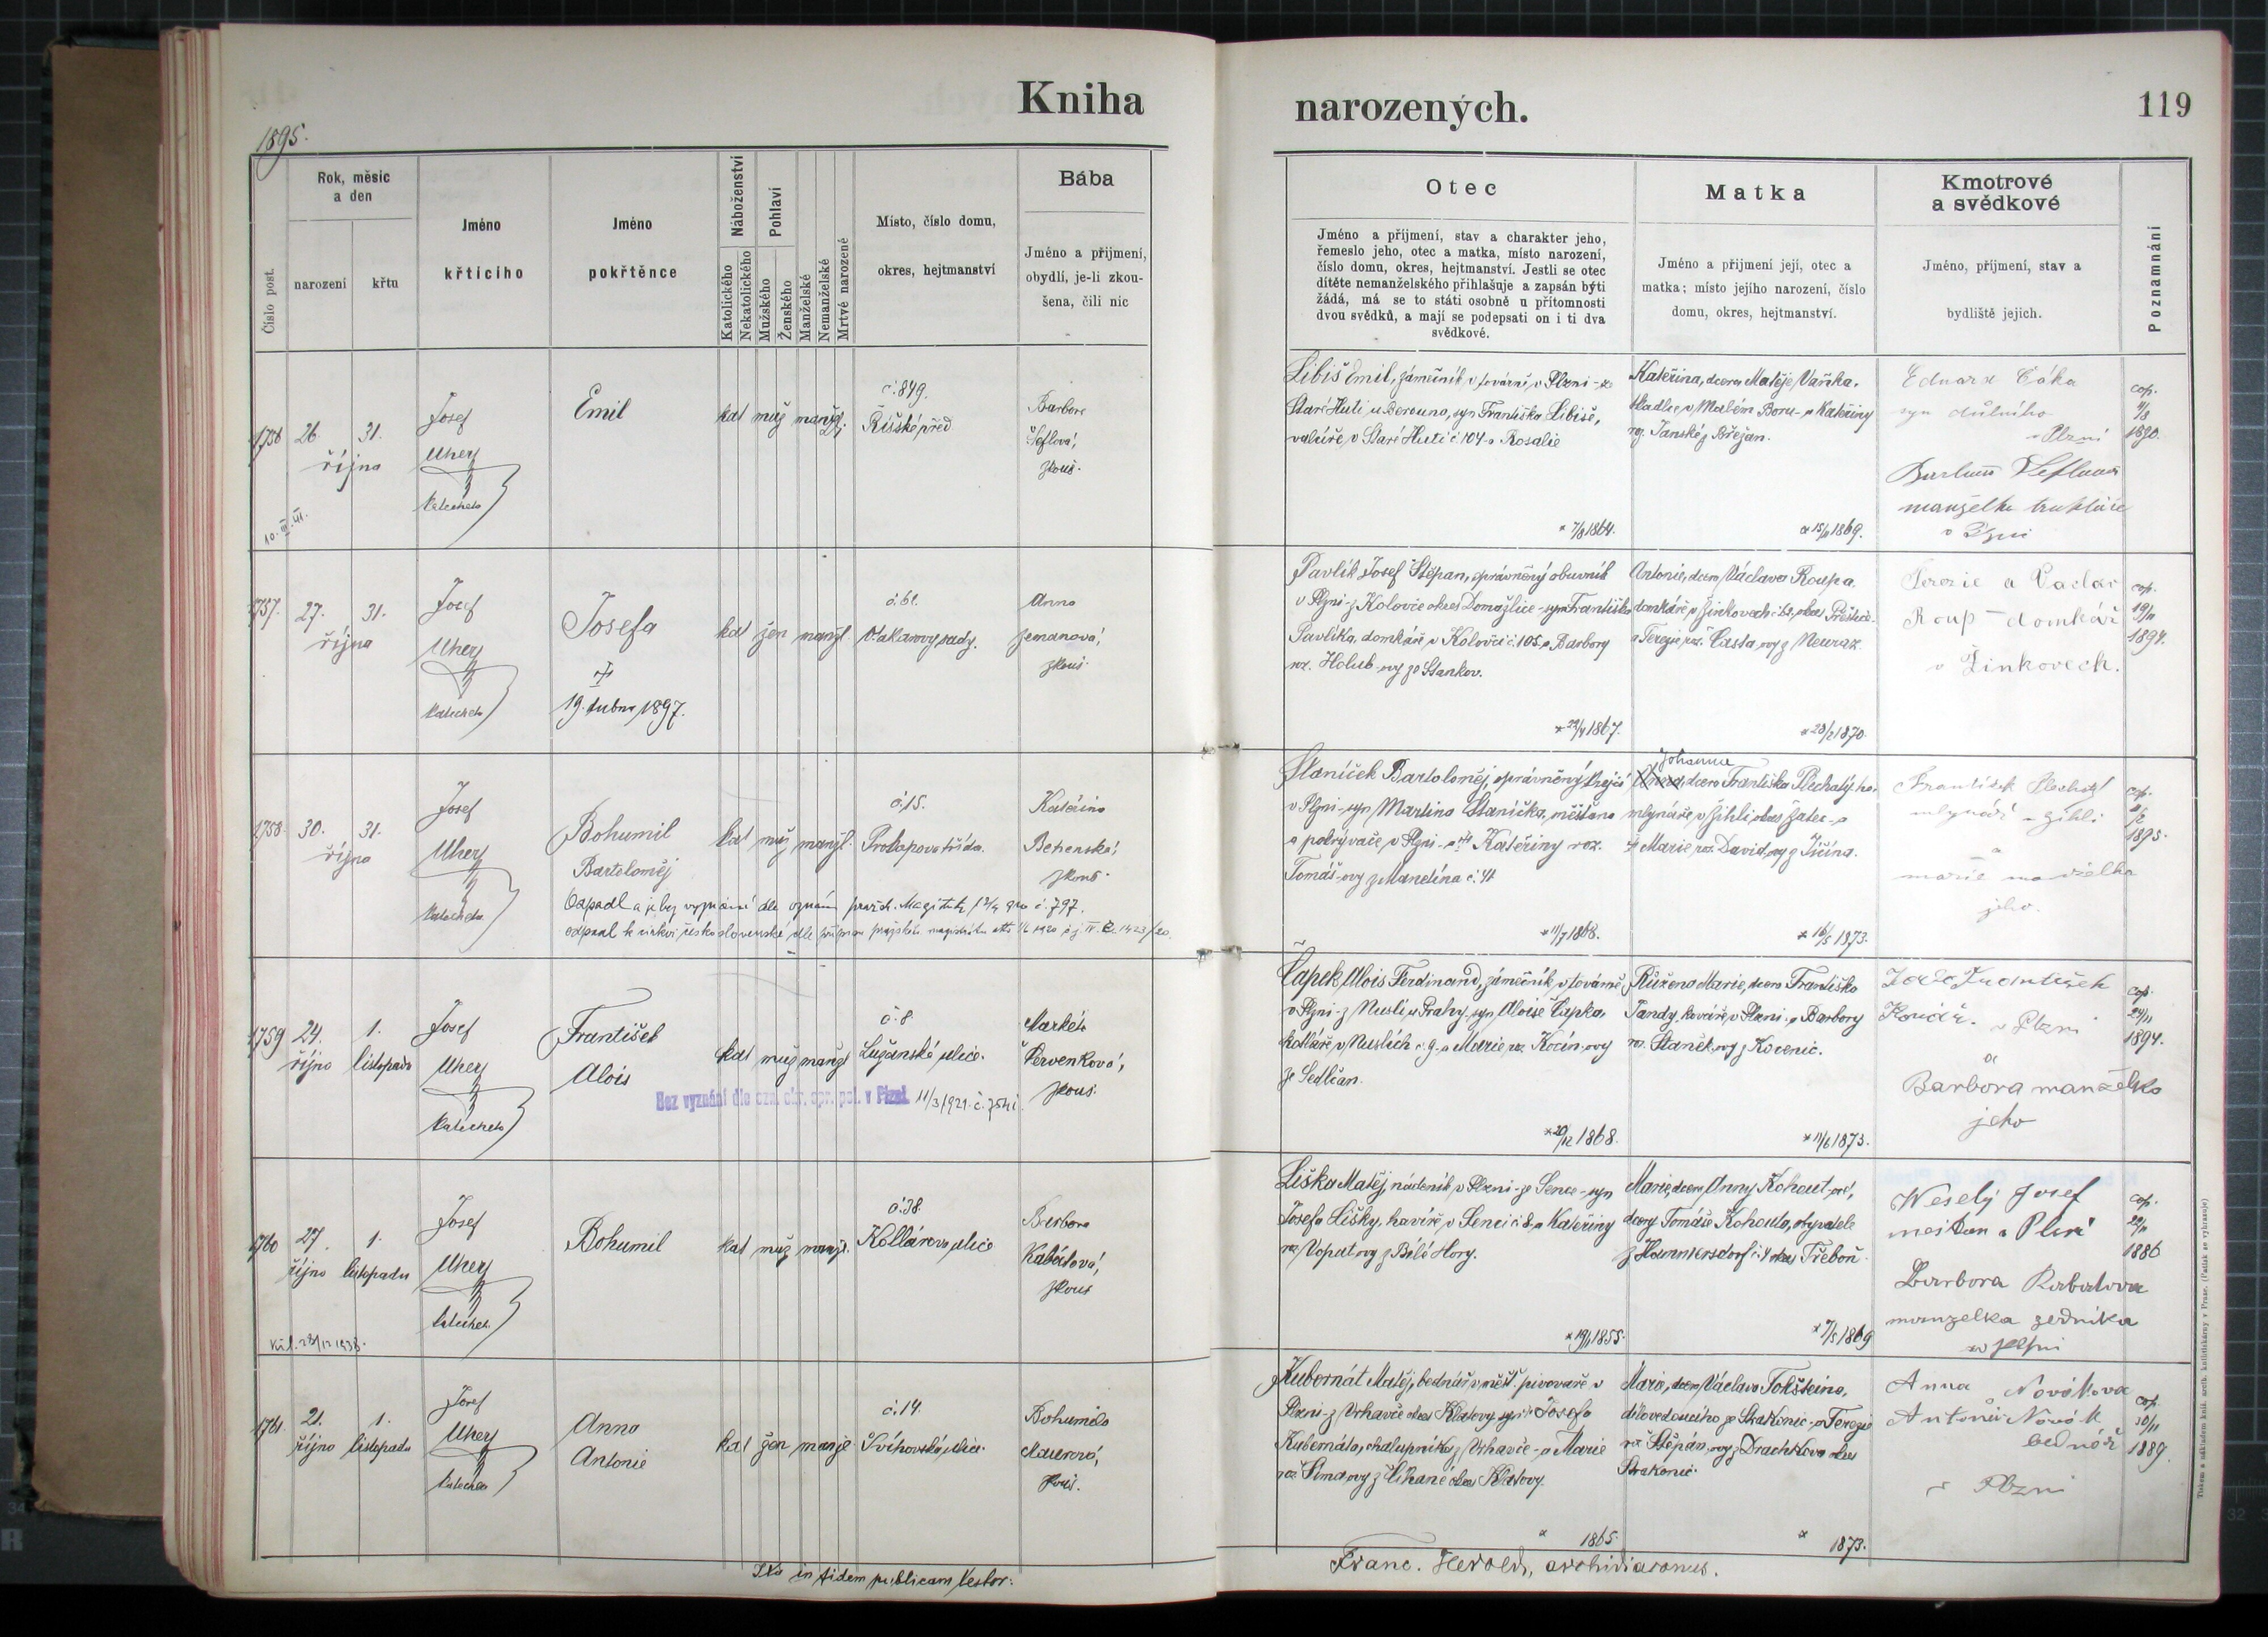 Kniha
narozených.
119
1895.
Číslo post.
Rok, měsíc
a den
narození
křtu
Jméno
křtícího
Jméno
pokřtěnce
Náboženství
Katolického
Nekatolického
Pohlaví
Mužského
Ženského
Manželské
Nemanželské
Mrtvé narozené
Místo, číslo domu,
okres, hejtmanství
Bába
Jméno a přijmení,
obydlí, je-li zkou-
šena, čili nic
Otec
Jméno a příjmení, stav a charakter jeho,
řemeslo jeho, otec a matka, místo narození,
číslo domu, okres, hejtmanství. Jestli se otec
dítěte nemanželského přihlašuje a zapsán býti
žádá, má se to státi osobně u přítomnosti
dvou svědků, a mají se podepsati on i ti dva
svědkové.
Matka
Jméno a přijmení její, otec a
matka; místo jejího narození, číslo
domu, okres, hejtmanství.
Kmotrové
a svědkové
Jméno, příjmení, stav a
bydliště jejich.
Poznamnání
1756 26. 31.
října
Josef
Uher
katecheta
Emil
kat muž manžel.
č. 849.
Říšské před.
Barbora
Šeflová,
zkouš.
10. III. 41.
Libiš Emil, zámečník v továrně v Plzni - ze
Staré Huti u Berouna, syn Františka Libiše,
valcíře v Staré Huti č 104 a Rosalie
* 7/8 1864.
Kateřina, dcera Matěje Vaňka,
tkadlce v Malém Boru - a Kateřiny
roz. Janské z Břežan.
* 15/11 1869.
Eduard Cáka
syn důlního
v Plzni
manželka truhláře
v Plzni
cop.
1890.
1757. 27. 31.
října
Josef
Uher
katecheta
Josefa
19. dubna 1897.
kat žen manžel.
č. 61.
Otakarovy sady.
Anna
Zemanová,
zkouš.
Pavlík Josef Štěpan, oprávněný obuvník
v Plzni - z Kolovče okres Domažlice - syn Františka
Pavlíka, domkáře v Kolovči č 105 a Barbory
roz. Holub-ovy ze Stankov.
* 29/4 1867.
Antonie, dcera Václava Roupa
domkáře v Žinkovech č. 62, okres Přeštice
a Terezie roz. Časta-ovy z Neuraz.
* 28/2 1870.
Terezie a Vaclav
Roup - domkář
v Žinkovech.
cop.
19/11
1894.
1758. 30. 31.
října
Josef
Uher
katecheta
Bohumil
Bartoloměj
Odpadl a je bez vyznání dle oznám pražsk. Magistrátu č. 797.
odpadl k církvi československé dle přípisu pražského magistrátu 1920 č j IV. B. 1423/20.
kat muž manžel.
č. 15.
Prokopova třída.
Kateřina
Betenská,
zkouš.
Staníček Bartoloměj, oprávněný krejčí
v Plzni - syn Martina Staníčka, měšťana
a pokrývače v Plzni - a Kateřiny roz.
Tomáš-ovy z Mandína č. 41
* 11/7 1868.
Johanna
Anna, dcera Františka Plechatýho,
mlynáře v Žihli okres Žatec - a
Marie roz. David-ovy z Jičína.
* 16/5 1873.
František Plechatý
mlynář v Žihli
a
marie manželka
jeho.
cop.
1895.
1759 24. 1.
října listopadu
Josef
Uher
katecheta
František
Alois
Bez vyznání dle ozn. okr. spr. pol. v Plzni 11/3/1921 č. 7541.
kat muž manžel
č. 8.
Lužanská ulice.
Markéta
Červenková,
zkouš.
Čapek Alois Ferdinand, zámečník v továrně
v Plzni - z Nuslí u Prahy, syn Aloise Čapka,
kotláře v Nuslích č. 9. a Marie roz. Kočín-ovy
ze Sedlčan.
* 20/12 1868.
Růžena Marie, dcera Františka
Tandy, kováře v Plzni, a Barbory
roz. Staněk-ovy z Kocenic.
* 11/6 1873.
Kovář. v Plzni
a
Barbora manželka
jeho
cop.
24/11
1894.
1760 27. 1.
října listopadu
Josef
Uher
katechet.
Bohumil
kat muž manžel.
č. 38.
Kollárova ulice
Barbora
Kabátová,
zkouš
28/12 1938.
Liška Matěj, nádeník v Plzni - ze Sence - syn
Josefa Lišky, havíře v Senci č 8, a Kateřiny
roz. Vopat-ovy z Bílé Hory.
* 19/1 1855.
Marie, dcera Anny Kohout-ové,
dcery Tomáše Kohouta, obyvatele
z Hammersdorf č. 4 okres Třeboň.
* 7/5 1869
Weselý Josef
mešťan v Plzni
Barbora Kabatova
manzelka zedníka
w Plzni
cop.
1886
1761. 21. 1.
října listopadu
Josef
Uher
katecheta
Anna
Antonie
kat žen manžel
č. 14.
Švihovská ulice.
Bohumila
Maurová,
zkouš.
Kubernát Matěj, bednář v měšť. pivovaře v
Plzni - z Vrhavče okres Klatovy, syn Josefa
Kubernáta, chalupníka z Vrhavče - a Marie
roz. Šima-ovy z Číhaně okres Klatovy.
* 1865.
Marie, dcera Václava Tokšteina,
dílovedoucího ze Strakonic - a Terezie
roz Štěpán-ovy z Drachkova okres
Strakonic.
* 1873.
Anna Novákova
Antonín Novák
bednář
v Plzni
cop.
1889.
Ita in fidem publicam testor:
Franc. Herold, archidiaconus.